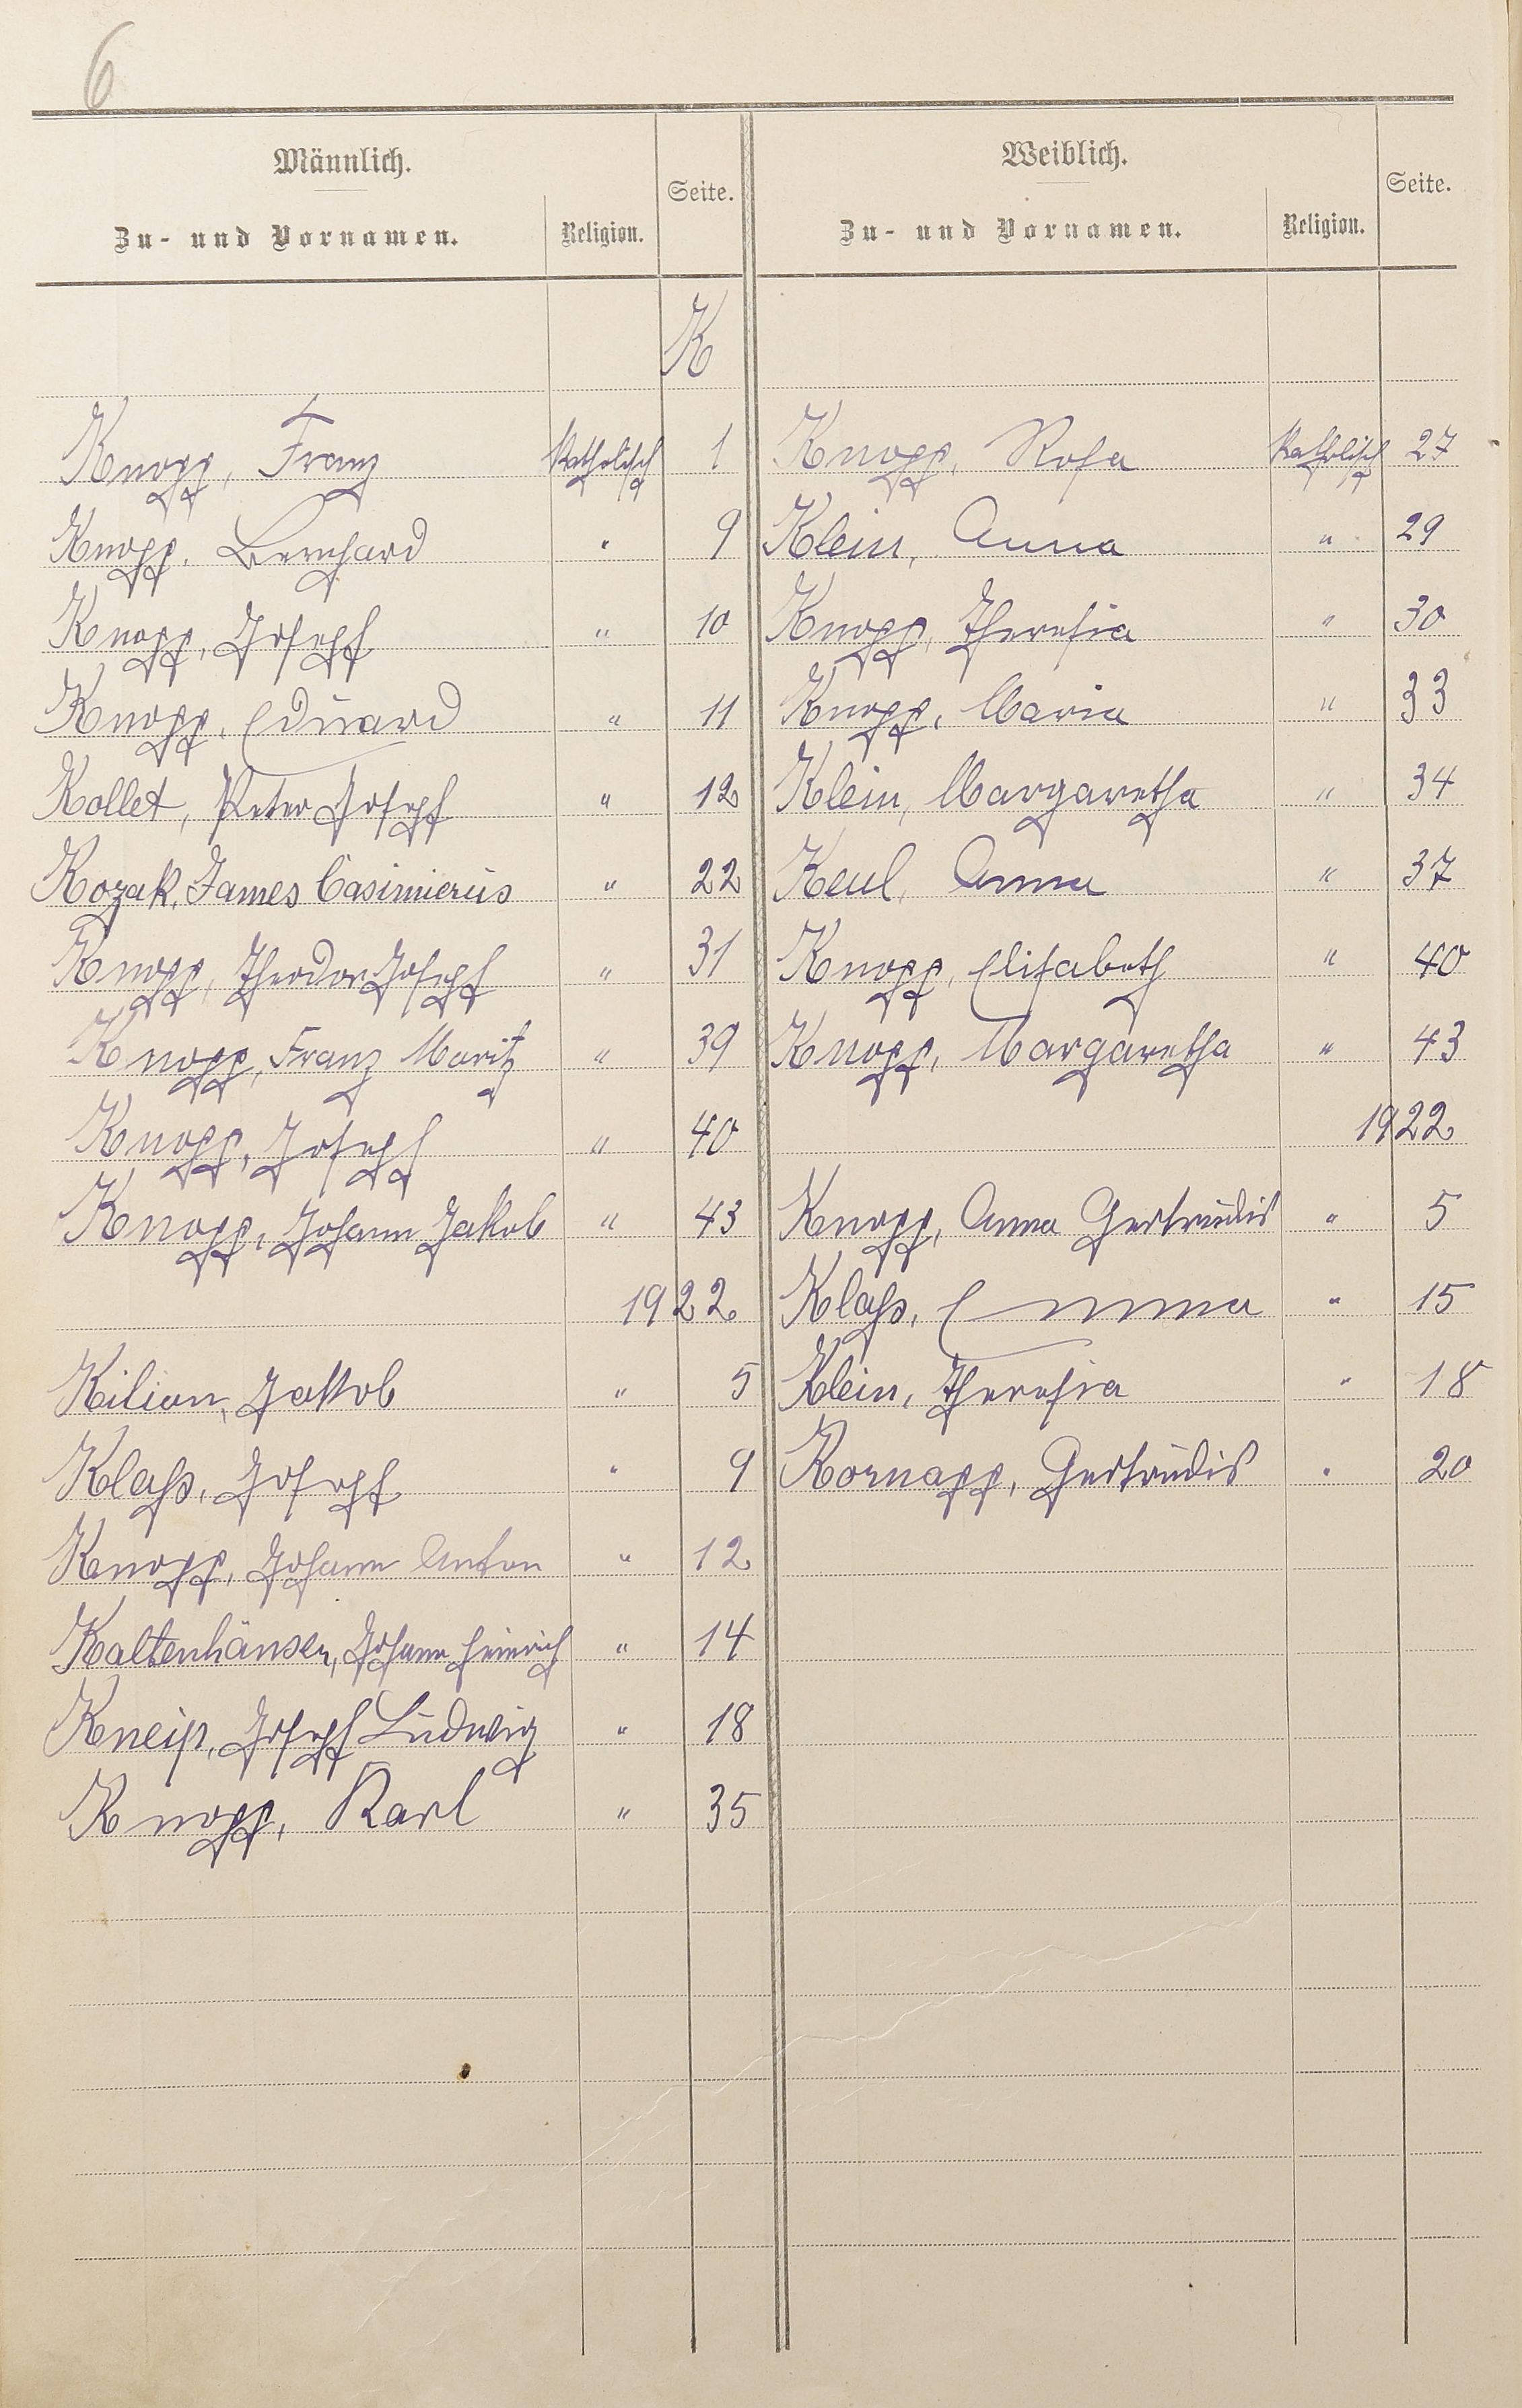 6
Männlich.
Zu- und Vornamen.
Religion.
Seite.
Weiblich.
Zu- und Vornamen.
Religion.
Seite.
K
Knopp, Franz Katholisch 1 Knopp, Rosa Katholisch 27
Knopp, Bernhard " 9 Klein, Anna " 29
Knopp, Joseph " 10 Knopp, Theresia " 30
Knopp, Eduard " 11 Knopp, Maria " 33
Kollet, Peter Joseph " 12 Klein, Margaretha " 34
Kozak, James Casimierus " 22 Keul, Anna " 37
Knopp, Theodor Joseph " 31 Knopp, Elisabeth " 40
Knopp, Franz Moritz " 39 Knopp, Margaretha " 43
Knopp, Joseph " 40 1922
Knopp, Johann Jakob " 43 Knopp, Anna Gertrudis " 5
1922 Klaß, Emma " 15
Kilian, Jakob " 5 Klein, Theresia " 18
Klaß, Joseph " 9 Kornapp, Gertrudis " 20
Knopp, Johann Anton " 12
Kaltenhäuser, Johann Heinrich " 14
Kneip, Joseph Ludwig " 18
Knopp, Karl " 35